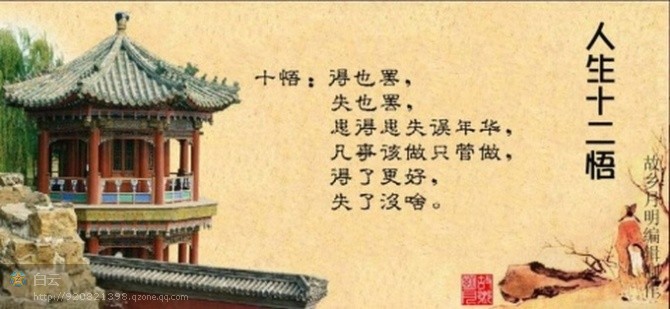 人生十二悟
十悟：得也罢，
失也罢，
患得患失误年华，
凡事该做只管做，
得了更好，
失了沒啥。
故乡月明编辑制作
白云
http://920821398.qzone.qq.com